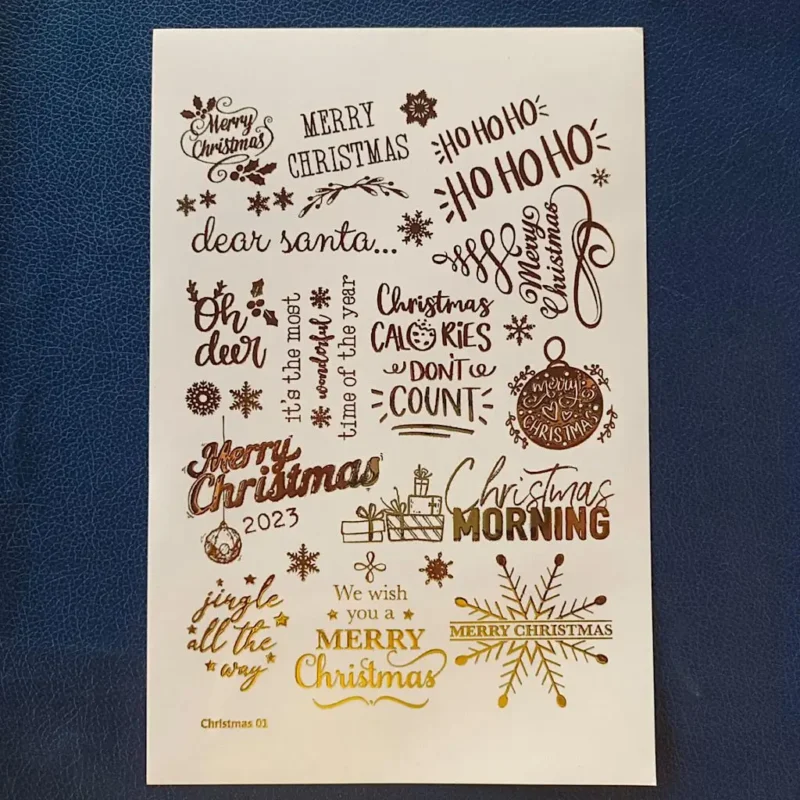 Merry
Christmas
MERRY
CHRISTMAS
HO HO HO
HO HO HO
dear santa...
Merry
Christmas
Oh
deer
it's the most
wonderful
time of the year
Christmas
CALORIES
DON'T
COUNT
merry
CHRISTMAS
Merry
Christmas
2023
Christmas
MORNING
jingle
all the
way
We wish
you a
MERRY
Christmas
MERRY CHRISTMAS
Christmas 01